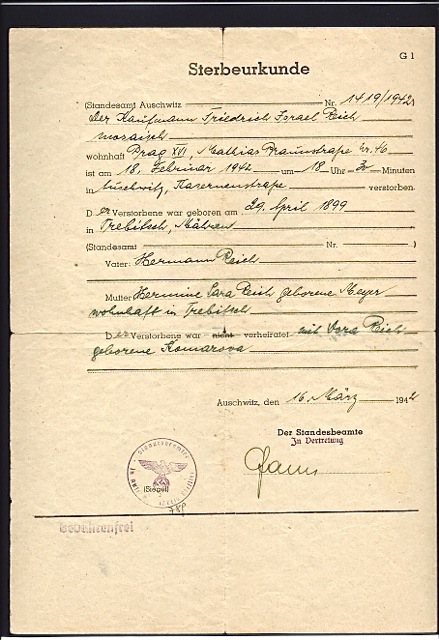 G 1
Sterbeurkunde
(Standesamt Auschwitz Nr. 1419/1942)
Der Kaufmann Friedrich Israel Reich
mosaisch
wohnhaft Prag XVI, Mathias Braunstraße Nr. 46
ist am 18. Februar 1942 um 18 Uhr Minuten
in Auschwitz, Kasernenstraße verstorben.
Der Verstorbene war geboren am 29. April 1899
in Trebitsch, Mähren
(Standesamt Nr. )
Vater: Hermann Reich
Mutter Hermine Sara Reich geborene Meyer
wohnhaft in Trebitsch
Der Verstorbene war nicht verheiratet mit Vera Reich
geborene Komarova
Auschwitz, den 16. März 1942
Der Standesbeamte
In Vertretung
(Siegel)
Gebührenfrei